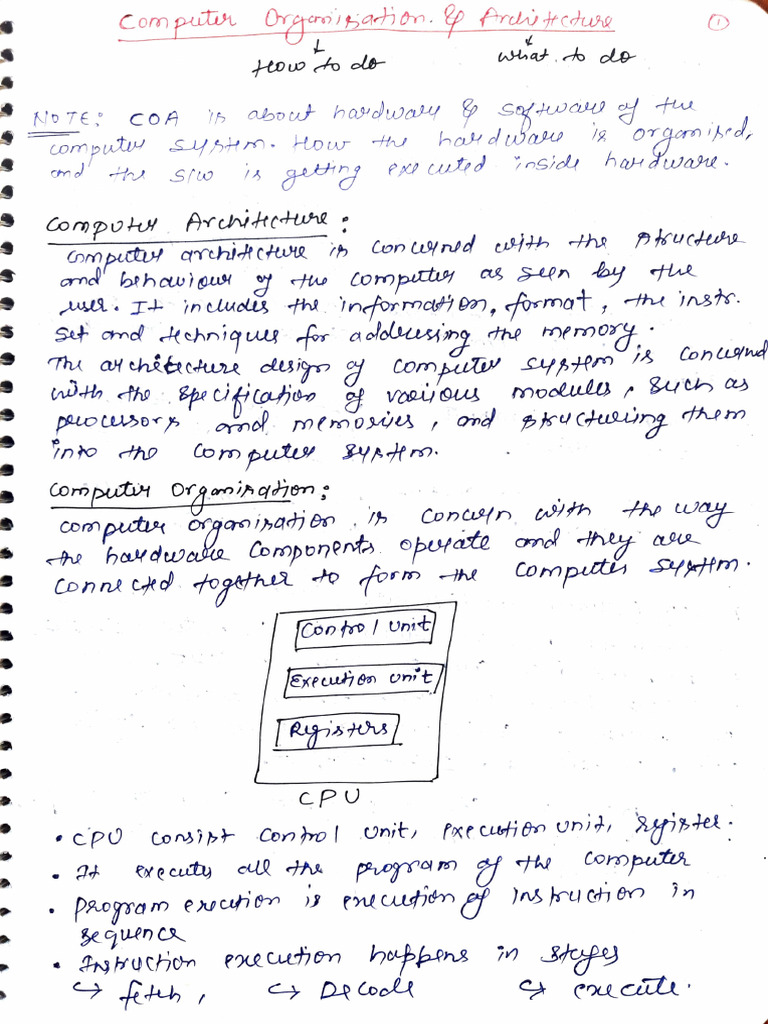 Computer Organisation & Architecture ①
How to do what to do
NOTE: COA is about hardware & software of the
computer system. How the hardware is organised,
and the s/w is getting executed inside hardware.
Computer Architecture:
Computer architecture is concerned with the structure
and behaviour of the computer as seen by the
user. It includes the information, format, the instr.
set and techniques for addressing the memory.
The architecture design of computer system is concerned
with the specification of various modules, such as
processors and memories, and structuring them
into the computer system.
Computer Organisation:
Computer organisation is concern with the way
the hardware components operate and they are
connected together to form the computer system.
Control unit
Execution unit
Registers
CPU
• CPU consist control unit, execution unit, register.
• It executes all the program of the computer
• Program execution is execution of instruction in
sequence
• Instruction execution happens in stages
↪ fetch, ↪ Decode ↪ execute.